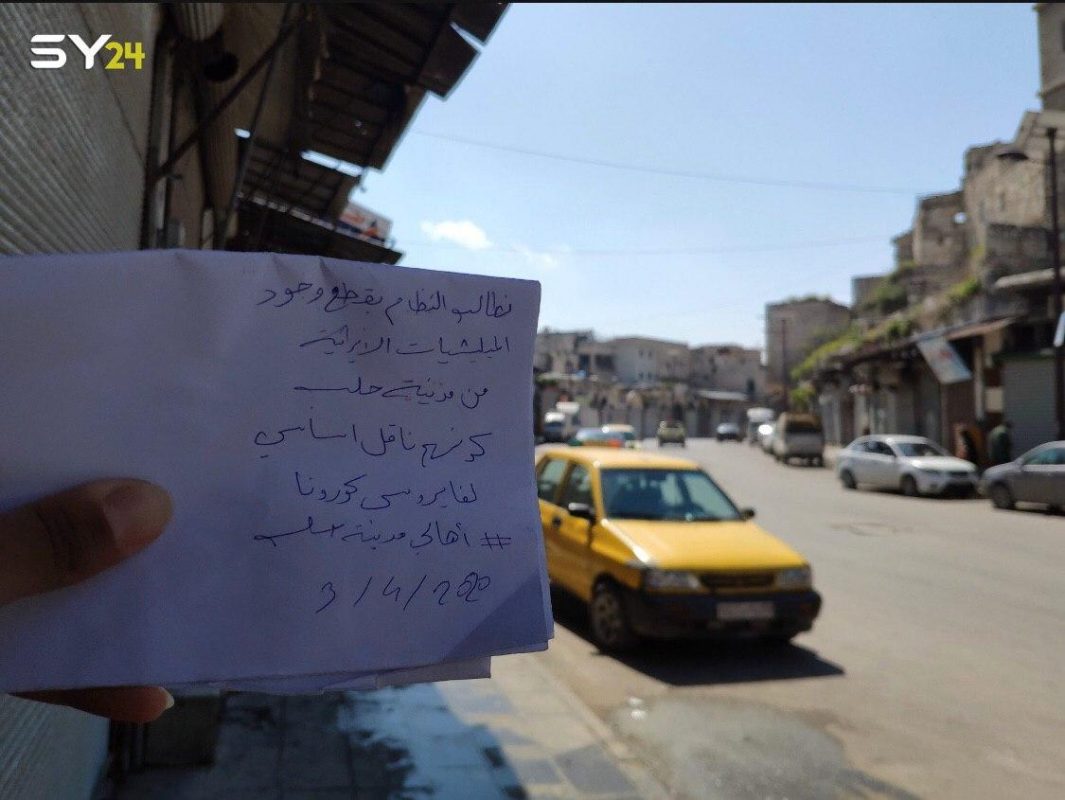 SY24
نطالب النظام بقطع وجود
الميليشيات الإيرانية
من مدينة حلب
كونهم ناقل اساسي
لفايروس كورونا
# أهالي مدينة حلب
3/4/2020